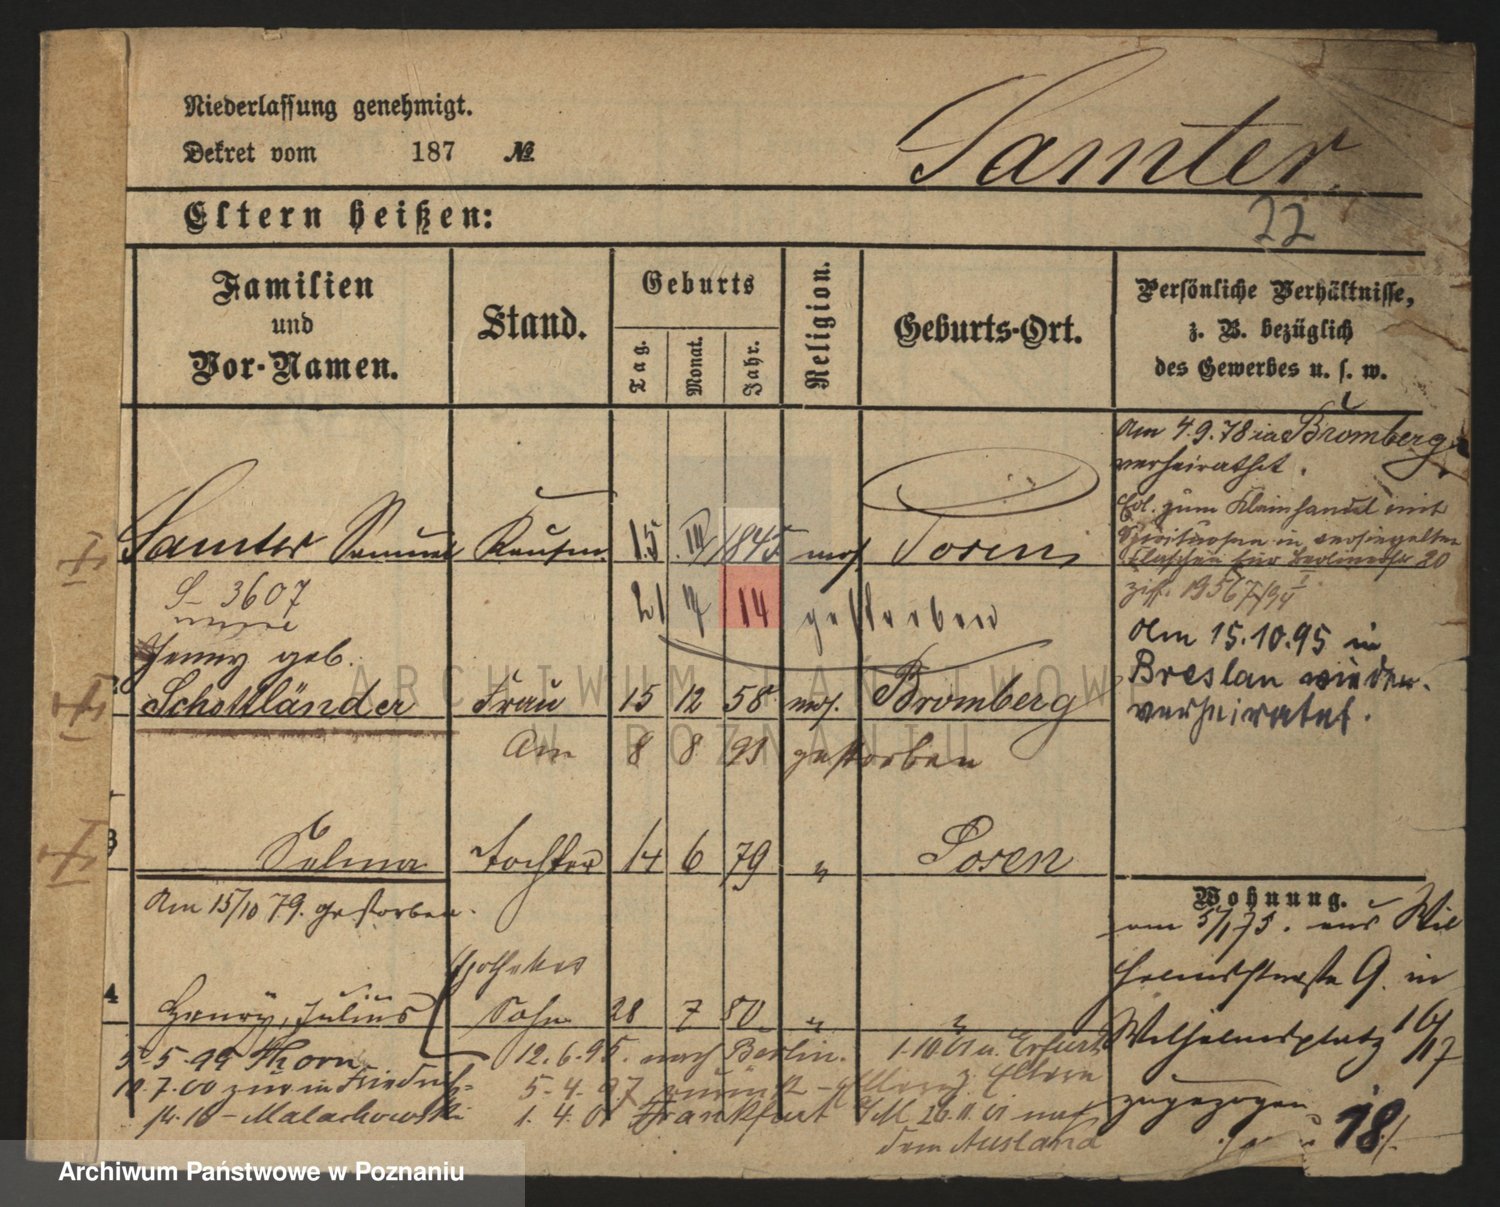 Niederlassung genehmigt.
Dekret vom 187 №
Samter.
Eltern heißen:
22
Familien und Vor-Namen.
Stand.
Geburts
Tag.
Monat.
Jahr.
Religion.
Geburts-Ort.
Persönliche Verhältnisse, z. B. bezüglich des Gewerbes u. s. w.
Am 4.9.78 in Bromberg
verheirathet.
Erl. zum Kleinhandel mit
Spirituosen in versiegelten
Flaschen für 20
Samter Samuel Kaufm. 15 III 1845 mos. Posen
S- 3607
21 14 gestorben
Am 15.10.95 in
Breslau wieder
verheiratet.
Jenny geb.
Schottländer Frau 15 12 58 mos. Bromberg
Am 8 8 91 gestorben
3
Selma Tochter 14 6 79 " Posen
Am 15/10 79. gestorben.
Wohnung.
am 5/1 75. aus Wil
helmstrasse 9. in
Wilhelmsplatz 16/17
zugezogen
18
Apotheker
4
Henry, Julius Sohn 28 7 80 " "
5-5-99 Thorn
12.6.95. nach Berlin.
1.10 01 a. Erfurt
z. Eltern
.7.00 zur in Friedrich-
5-4-97 zurück
10 - Malachowski
1. 4. 01 Frankfurt a/M 26.11.01 nach
dem Ausland
ARCHIWUM PAŃSTWOWE
W POZNANIU
Archiwum Państwowe w Poznaniu